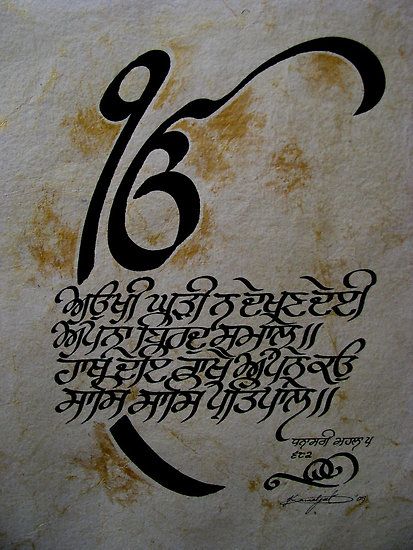 ੴ
ਅਉਖੀ ਘੜੀ ਨ ਦੇਖਣ ਦੇਈ
ਅਪਨਾ ਬਿਰਦੁ ਸਮਾਲੇ॥
ਹਾਥ ਦੇਇ ਰਾਖੈ ਅਪਨੇ ਕਉ
ਸਾਸਿ ਸਾਸਿ ਪ੍ਰਤਿਪਾਲੇ॥
ਧਨਾਸਰੀ ਮਹਲਾ ੫
੬੮੨